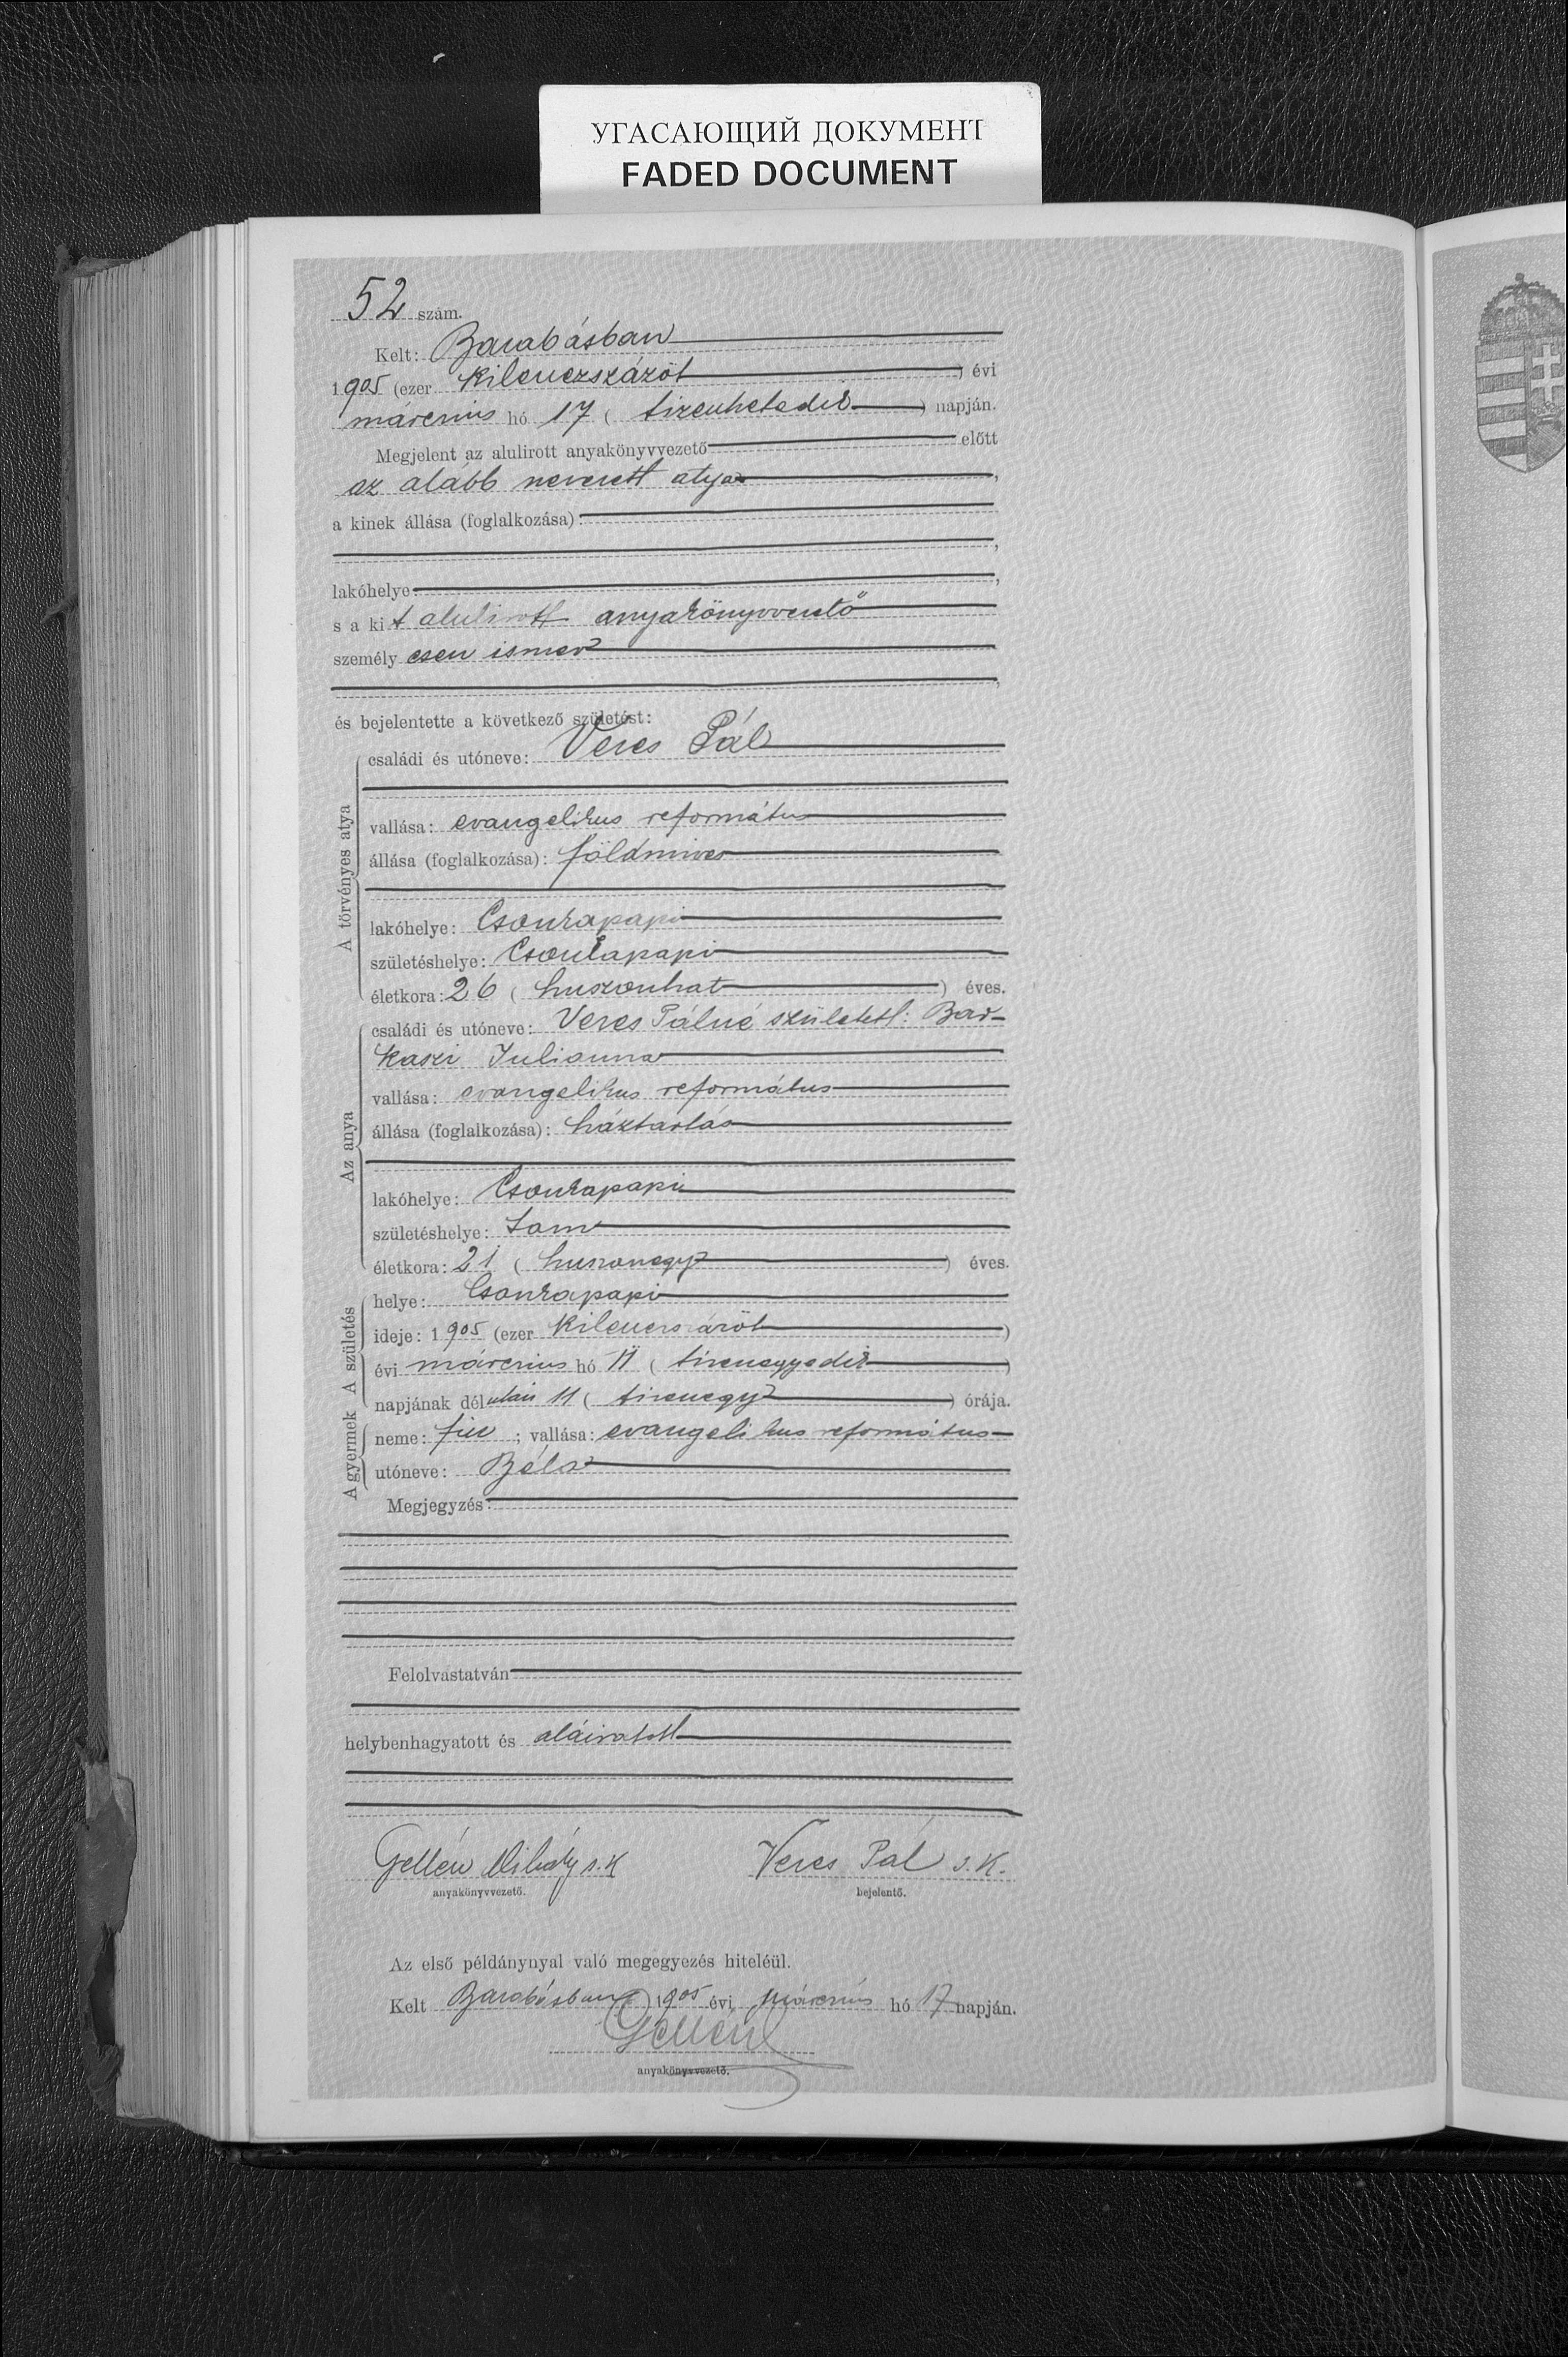 УГАСАЮЩИЙ ДОКУМЕНТ
FADED DOCUMENT
52 szám.
Kelt: Barabásban
1905 (ezer kilenczszázöt) évi
márczius hó 17 (tizenhetedik) napján.
Megjelent az alulirott anyakönyvvezető előtt
az alább nevezett atya,
a kinek állása (foglalkozása):
lakóhelye
s a kit alulirott anyakönyvvezető
személyesen ismer
és bejelentette a következő születést:
A törvényes atya
családi és utóneve: Veres Pál
vallása: evangelikus református
állása (foglalkozása): földmives
lakóhelye: Csonkapapi
születéshelye: Csonkapapi
életkora: 26 (huszonhat) éves.
Az anya
családi és utóneve: Veres Pálné született: Bar-
kaszi Julianna
vallása: evangelikus református
állása (foglalkozása): háztartás
lakóhelye: Csonkapapi
születéshelye:
életkora: 21 (huszonegy) éves.
A születés
helye: Csonkapapi
ideje: 1905 (ezer kilenczszázöt)
évi márczius hó 11 (tizenegyedik)
napjának délután 11 (tizenegy) órája.
A gyermek
neme: fiu; vallása: evangelikus református
utóneve: Béla
Megjegyzés:
Felolvastatván
helybenhagyatott és aláiratott
Gellén Mihály s.k. Veres Pál s.k.
anyakönyvvezető. bejelentő.
Az első példánynyal való megegyezés hiteléül.
Kelt Barabásban 1905 évi márczius hó 17 napján.
Gellén
anyakönyvvezető.